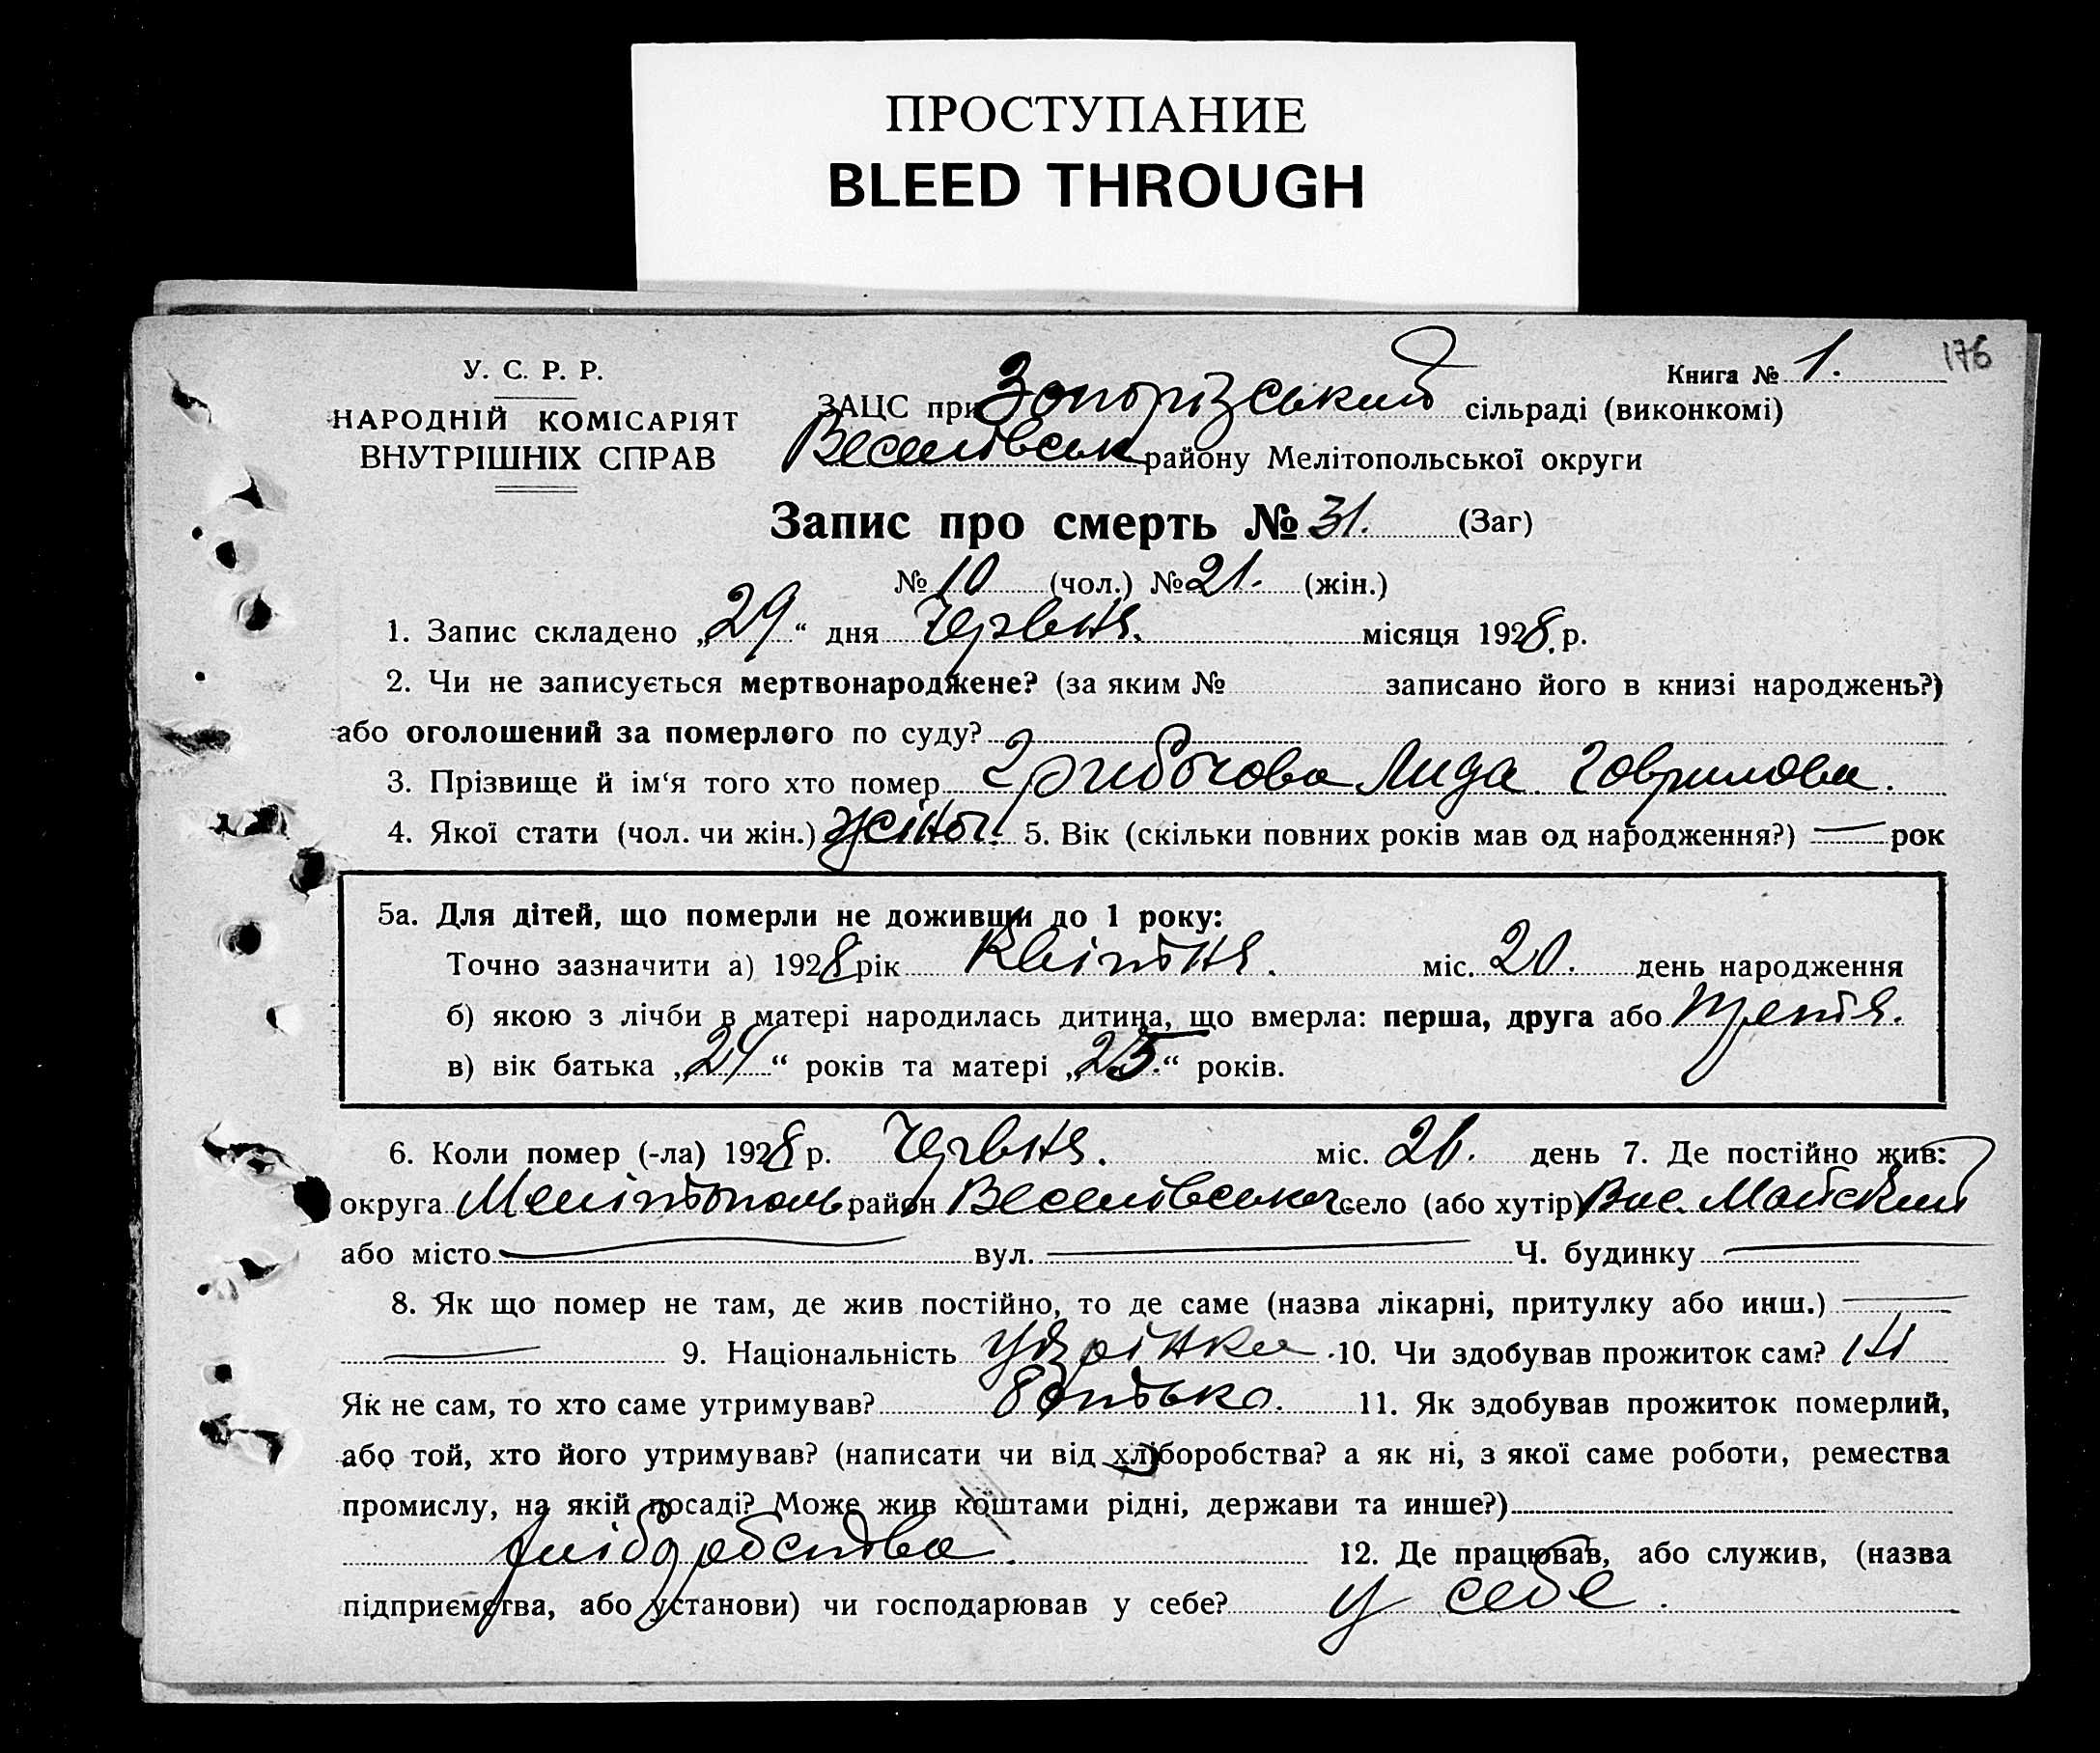 ПРОСТУПАНИЕ
BLEED THROUGH
176
У. С. Р. Р.
НАРОДНІЙ КОМІСАРІЯТ
ВНУТРІШНІХ СПРАВ
Книга № 1.
ЗАЦС при Запорізський сільраді (виконкомі)
Веселівськ району Мелітопольської округи
Запис про смерть № 31. (Заг)
№ 10 (чол.) № 21. (жін.)
1. Запис складено „29“ дня Червня. місяця 1928 р.
2. Чи не записується мертвонароджене? (за яким № записано його в книзі народжень?)
або оголошений за померлого по суду?
3. Прізвище й ім‘я того хто помер Грибочова Лида Гаврилова.
4. Якої стати (чол. чи жін.) жіноч. 5. Вік (скільки повних років мав од народження?) — рок
5а. Для дітей, що померли не доживши до 1 року:
Точно зазначити а) 1928 рік Квітня. міс. 20. день народження
б) якою з лічби в матері народилась дитина, що вмерла: перша, друга або третя.
в) вік батька „24“ років та матері „25“ років.
6. Коли помер (-ла) 1928 р. Червня. міс. день 7. Де постійно жив:
округа Мелітополь район Веселівська село (або хутір) Вис. Майский
або місто — вул. — Ч. будинку —
8. Як що помер не там, де жив постійно, то де саме (назва лікарні, притулку або инш.) —
— 9. Національність 10. Чи здобував прожиток сам? ні
Як не сам, то хто саме утримував? батько. 11. Як здобував прожиток померлий,
або той, хто його утримував? (написати чи від хліборобства? а як ні, з якої саме роботи, ремества
промислу, на якій посаді? Може жив коштами рідні, держави та инше?)
хліборобства. 12. Де працював, або служив, (назва
підприємства, або установи) чи господарював у себе? у себе.